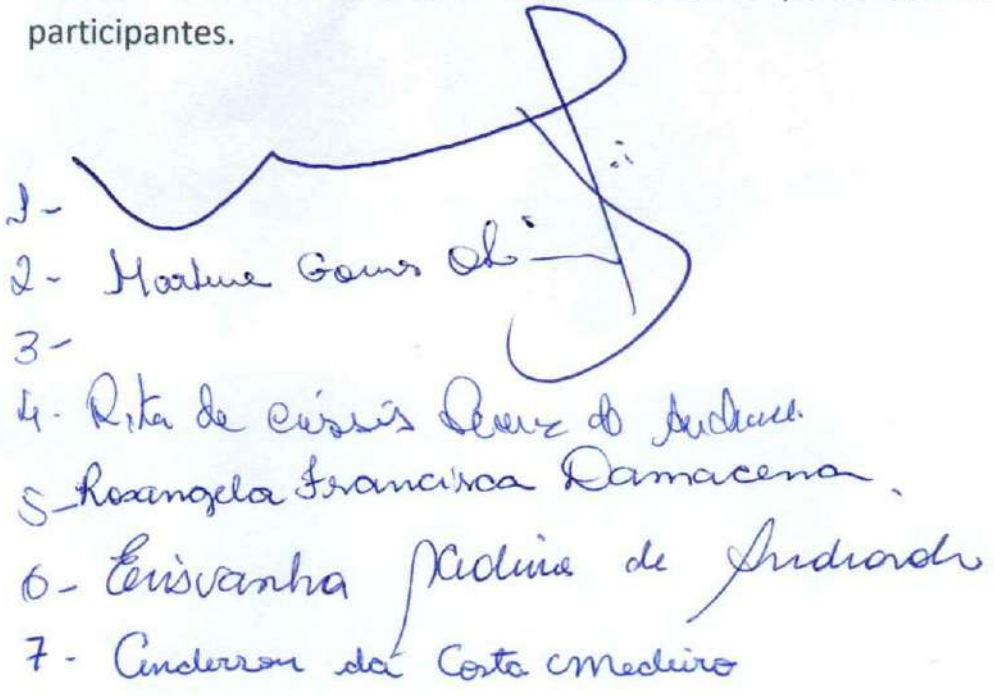 participantes.
1-
2- Marlene Gomes
3-
4- Rita de Cássia
5- Rosangela Francisca Damacena.
6- Erisvanha de Andrade
7- Anderson da Costa Medeiro